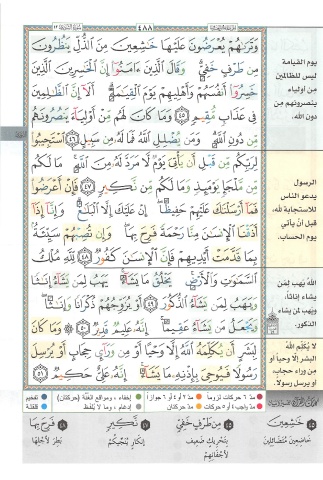 ٤٨٨
وَتَرَىٰهُمْ يُعْرَضُونَ عَلَيْهَا خَٰشِعِينَ مِنَ ٱلذُّلِّ يَنظُرُونَ
مِن طَرْفٍ خَفِىٍّ ۗ وَقَالَ ٱلَّذِينَ ءَامَنُوٓا۟ إِنَّ ٱلْخَٰسِرِينَ ٱلَّذِينَ
خَسِرُوٓا۟ أَنفُسَهُمْ وَأَهْلِيهِمْ يَوْمَ ٱلْقِيَٰمَةِ ۗ أَلَآ إِنَّ ٱلظَّٰلِمِينَ
فِى عَذَابٍ مُّقِيمٍ ٤٥ وَمَا كَانَ لَهُم مِّنْ أَوْلِيَآءَ يَنصُرُونَهُم
مِّن دُونِ ٱللَّهِ ۗ وَمَن يُضْلِلِ ٱللَّهُ فَمَا لَهُۥ مِن سَبِيلٍ ٤٦ ٱسْتَجِيبُوا۟
لِرَبِّكُم مِّن قَبْلِ أَن يَأْتِىَ يَوْمٌ لَّا مَرَدَّ لَهُۥ مِنَ ٱللَّهِ ۚ مَا لَكُم
مِّن مَّلْجَإٍ يَوْمَئِذٍ وَمَا لَكُم مِّن نَّكِيرٍ ٤٧ فَإِنْ أَعْرَضُوا۟
فَمَآ أَرْسَلْنَٰكَ عَلَيْهِمْ حَفِيظًا ۖ إِنْ عَلَيْكَ إِلَّا ٱلْبَلَٰغُ ۗ وَإِنَّآ إِذَآ
أَذَقْنَا ٱلْإِنسَٰنَ مِنَّا رَحْمَةً فَرِحَ بِهَا ۖ وَإِن تُصِبْهُمْ سَيِّئَةٌۢ
بِمَا قَدَّمَتْ أَيْدِيهِمْ فَإِنَّ ٱلْإِنسَٰنَ كَفُورٌ ٤٨ لِّلَّهِ مُلْكُ
ٱلسَّمَٰوَٰتِ وَٱلْأَرْضِ ۚ يَخْلُقُ مَا يَشَآءُ ۚ يَهَبُ لِمَن يَشَآءُ إِنَٰثًا
وَيَهَبُ لِمَن يَشَآءُ ٱلذُّكُورَ ٤٩ أَوْ يُزَوِّجُهُمْ ذُكْرَانًا وَإِنَٰثًا ۖ
وَيَجْعَلُ مَن يَشَآءُ عَقِيمًا ۚ إِنَّهُۥ عَلِيمٌ قَدِيرٌ ٥٠ وَمَا كَانَ
لِبَشَرٍ أَن يُكَلِّمَهُ ٱللَّهُ إِلَّا وَحْيًا أَوْ مِن وَرَآئِ حِجَابٍ أَوْ يُرْسِلَ
رَسُولًا فَيُوحِىَ بِإِذْنِهِۦ مَا يَشَآءُ ۚ إِنَّهُۥ عَلِىٌّ حَكِيمٌ ٥١
يوم القيامة
ليس للظالمين
من أولياء
ينصرونهم من
دون الله.
الرسول
يدعو الناس
للاستجابة لله،
قبل أن يأتي
يوم الحساب.
الله يهب لمن
يشاء إناثا،
ويهب لمن يشاء
الذكور.
لا يكلم الله
البشر إلا وحيا أو
من وراء حجاب،
أو يرسل رسولا.
مد ٦ حركات لزوما
مد ٢ أو ٤ أو ٦ جوازا
إخفاء، ومواقع الغنة (حركتان)
تفخيم
مد واجب ٤ أو ٥ حركات
مد حركتان
إدغام، وما لا يلفظ
قلقلة
٤٥ خَاشِعِينَ
خاضعين متضائلين
٤٥ طَرْفٍ خَفِيٍّ
بتحريك ضعيف
لأجفانهم
٤٧ نَكِيرٍ
إنكار ينجيكم
٤٨ فَرِحَ بِهَا
بطر لأجلها